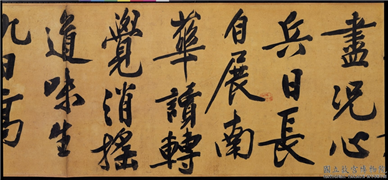 盡況心
兵日長
自展南
華讀轉
覺消搖
道味生
九日高
國立故宮博物院